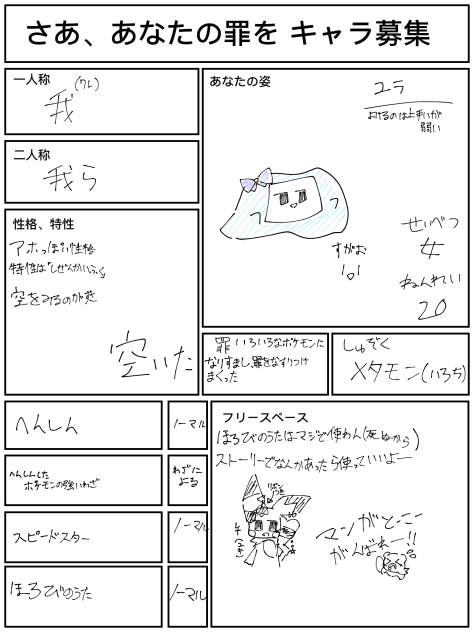 さあ、あなたの罪を キャラ募集
一人称
(ワレ)
我
二人称
我ら
性格、特性
アホっぽい性格
特性は「しぜんかいふく」
空をみるのが好き
空いた
あなたの姿
ユラ
おやるのは上手いが
弱い
せいべつ
女
ねんれい
20
すがお
罪 いろいろなポケモンに
なりすまし、罪をなすりつけ
まくった
しゅぞく
メタモン(いろち)
へんしん
ノーマル
へんしんした
ポケモンの強いわざ
わざに
よる
スピードスター
ノーマル
ほろびのうた
ノーマル
フリースペース
ほろびのうたはマジで使わん(死ぬから)
ストーリーでなんかあったら使っていいよー
マンガとーこー
がんばれー!!